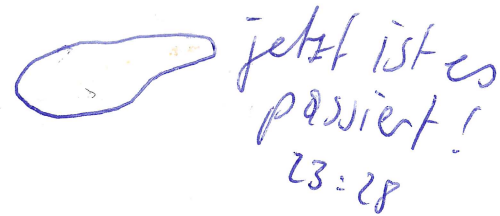 jetzt ist es
passiert!
23:28